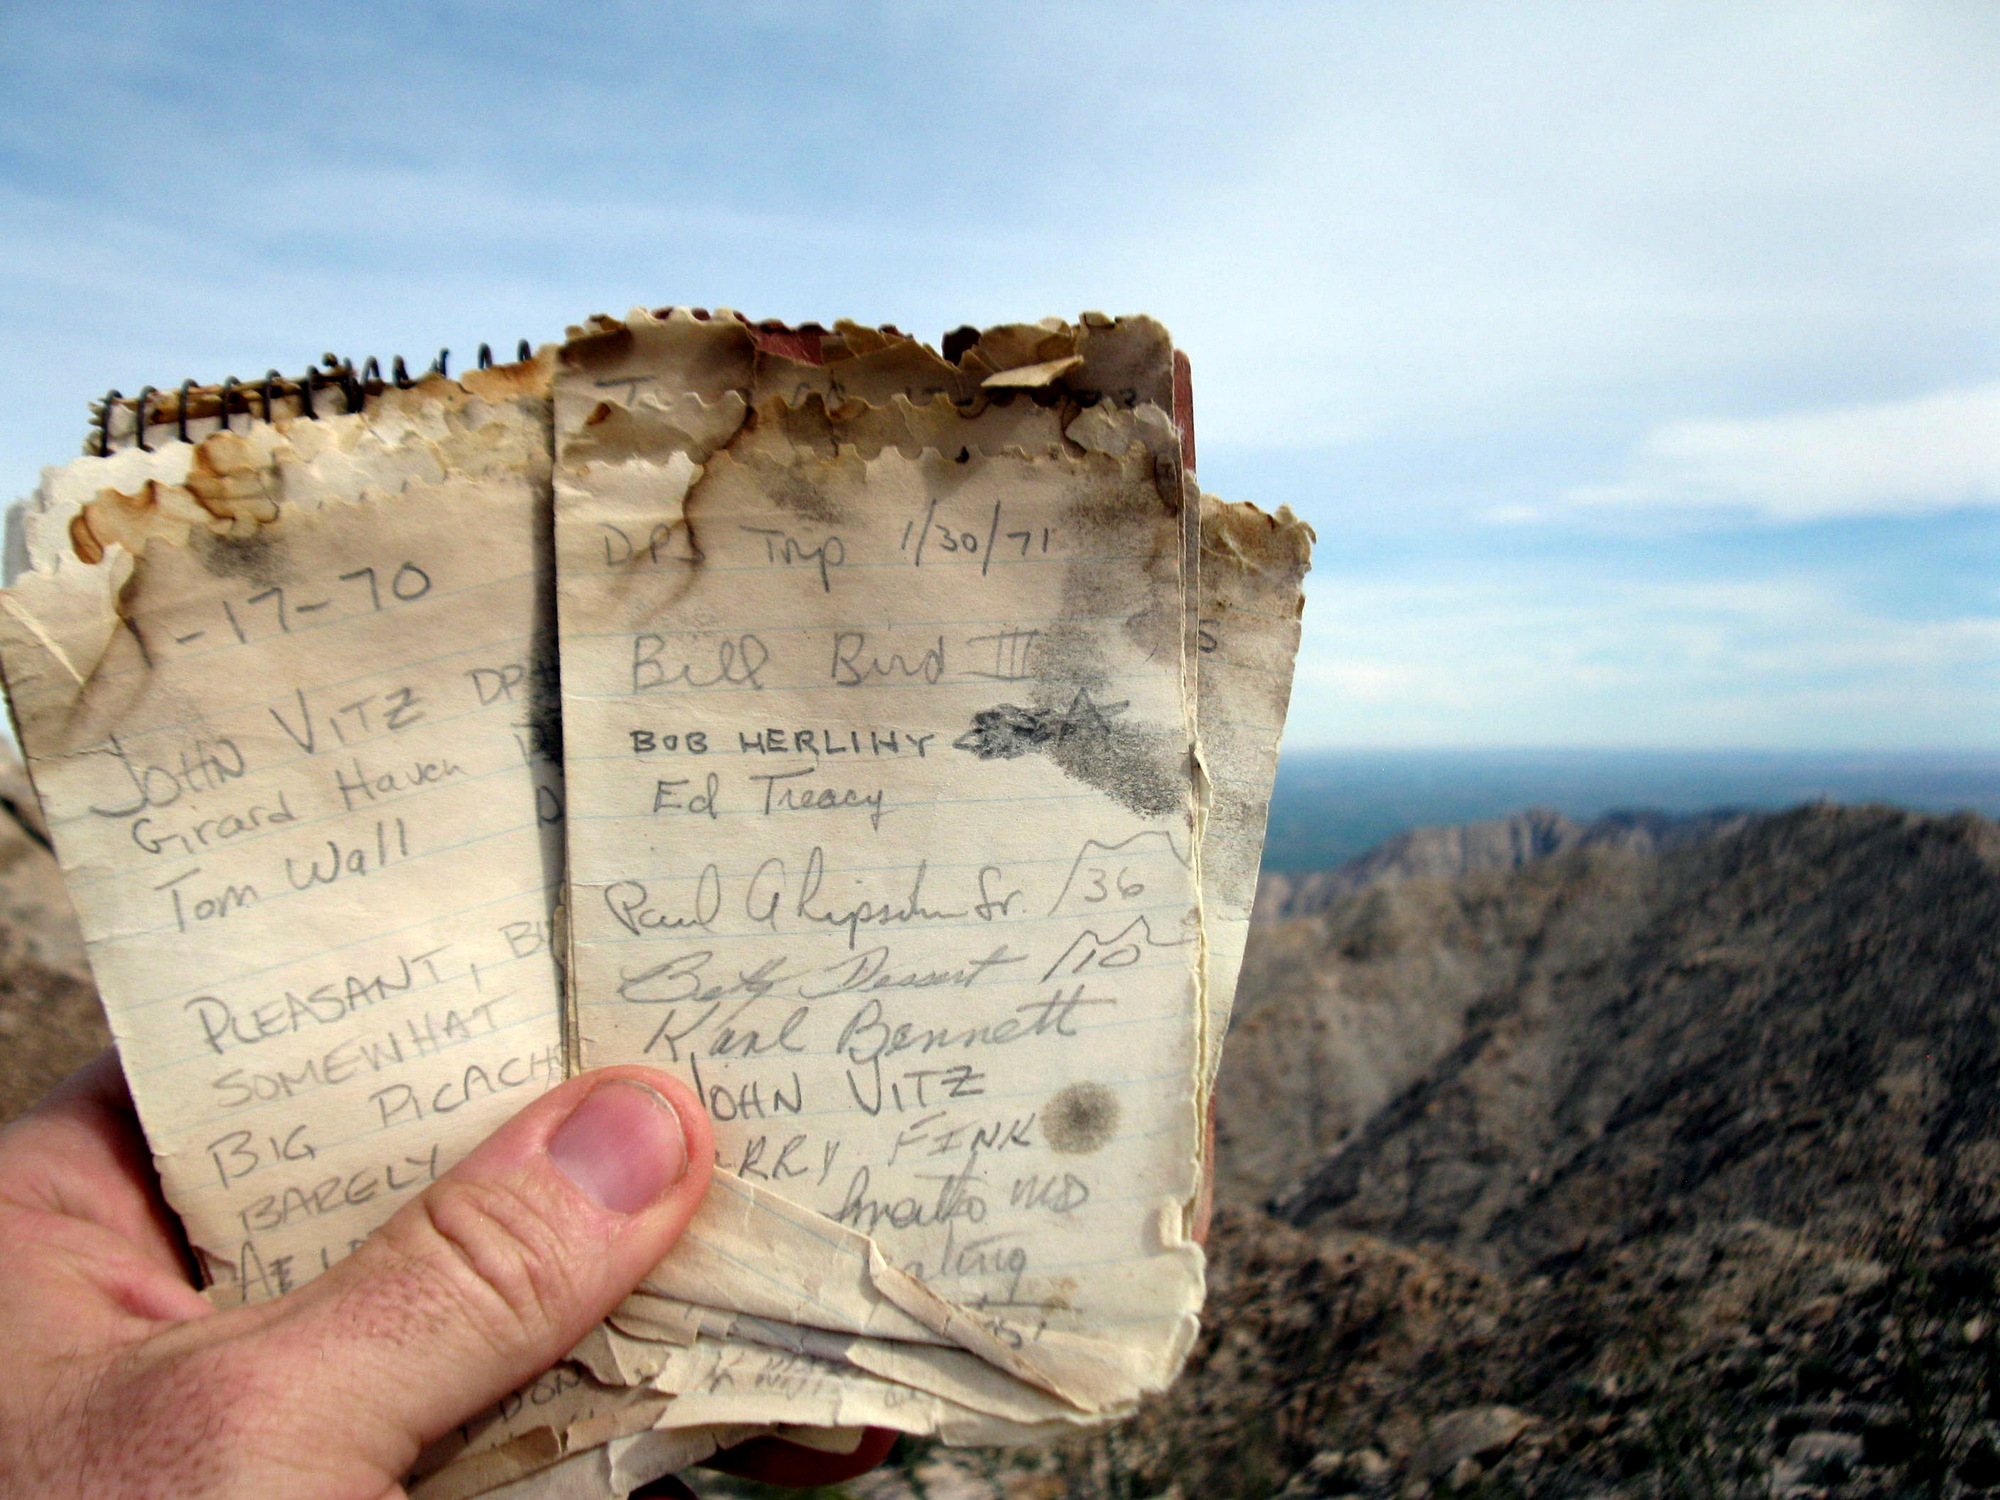 1-17-70
JOHN VITZ DP
Girard Haven
Tom Wall
PLEASANT,
SOMEWHAT
BIG PICACH
BARELY
DPS Trip 1/30/71
Bill Bird III
BOB HERLIHY
Ed Treacy
Paul Jr. 36
Betty Dessert 10
Karl Bennett
JOHN VITZ
RRY FINK
MD